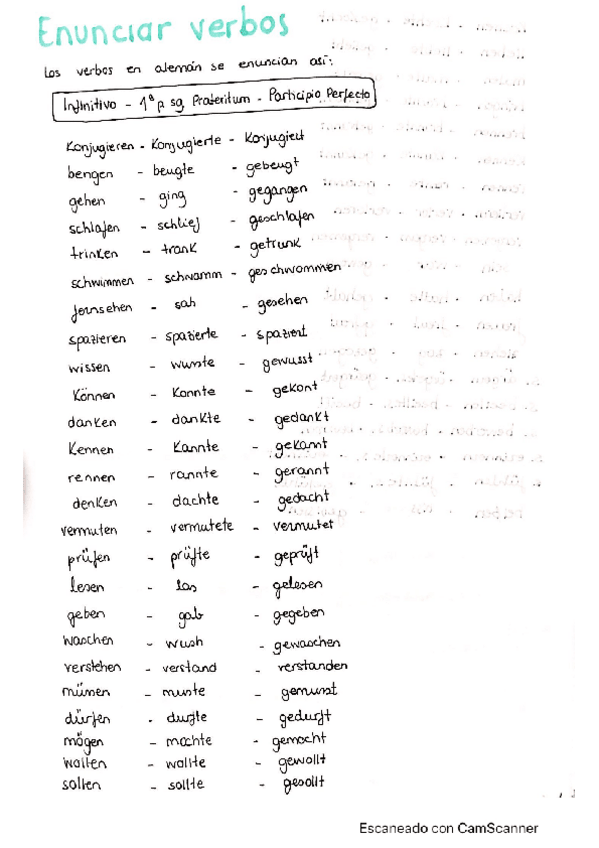 Enunciar verbos
Los verbos en alemán se enuncian así:
Infinitivo - 1ª p sg. Präteritum - Participio Perfecto
Konjugieren - Konjugierte - Konjugiert
bengen - beugte - gebeugt
gehen - ging - gegangen
schlafen - schlief - geschlafen
trinken - trank - getrunk
schwimmen - schwamm - geschwommen
fernsehen - sah - gesehen
spazieren - spazierte - spaziert
wissen - wusste - gewusst
Können - Konnte - gekont
danken - dankte - gedankt
Kennen - Kannte - gekannt
rennen - rannte - gerannt
denken - dachte - gedacht
vermuten - vermutete - vermutet
prüfen - prüfte - geprüft
lesen - las - gelesen
geben - gab - gegeben
waschen - wush - gewaschen
verstehen - verstand - verstanden
müssen - musste - gemusst
dürfen - durfte - gedurft
mögen - mochte - gemocht
wollen - wollte - gewollt
sollen - sollte - gesollt
Escaneado con CamScanner